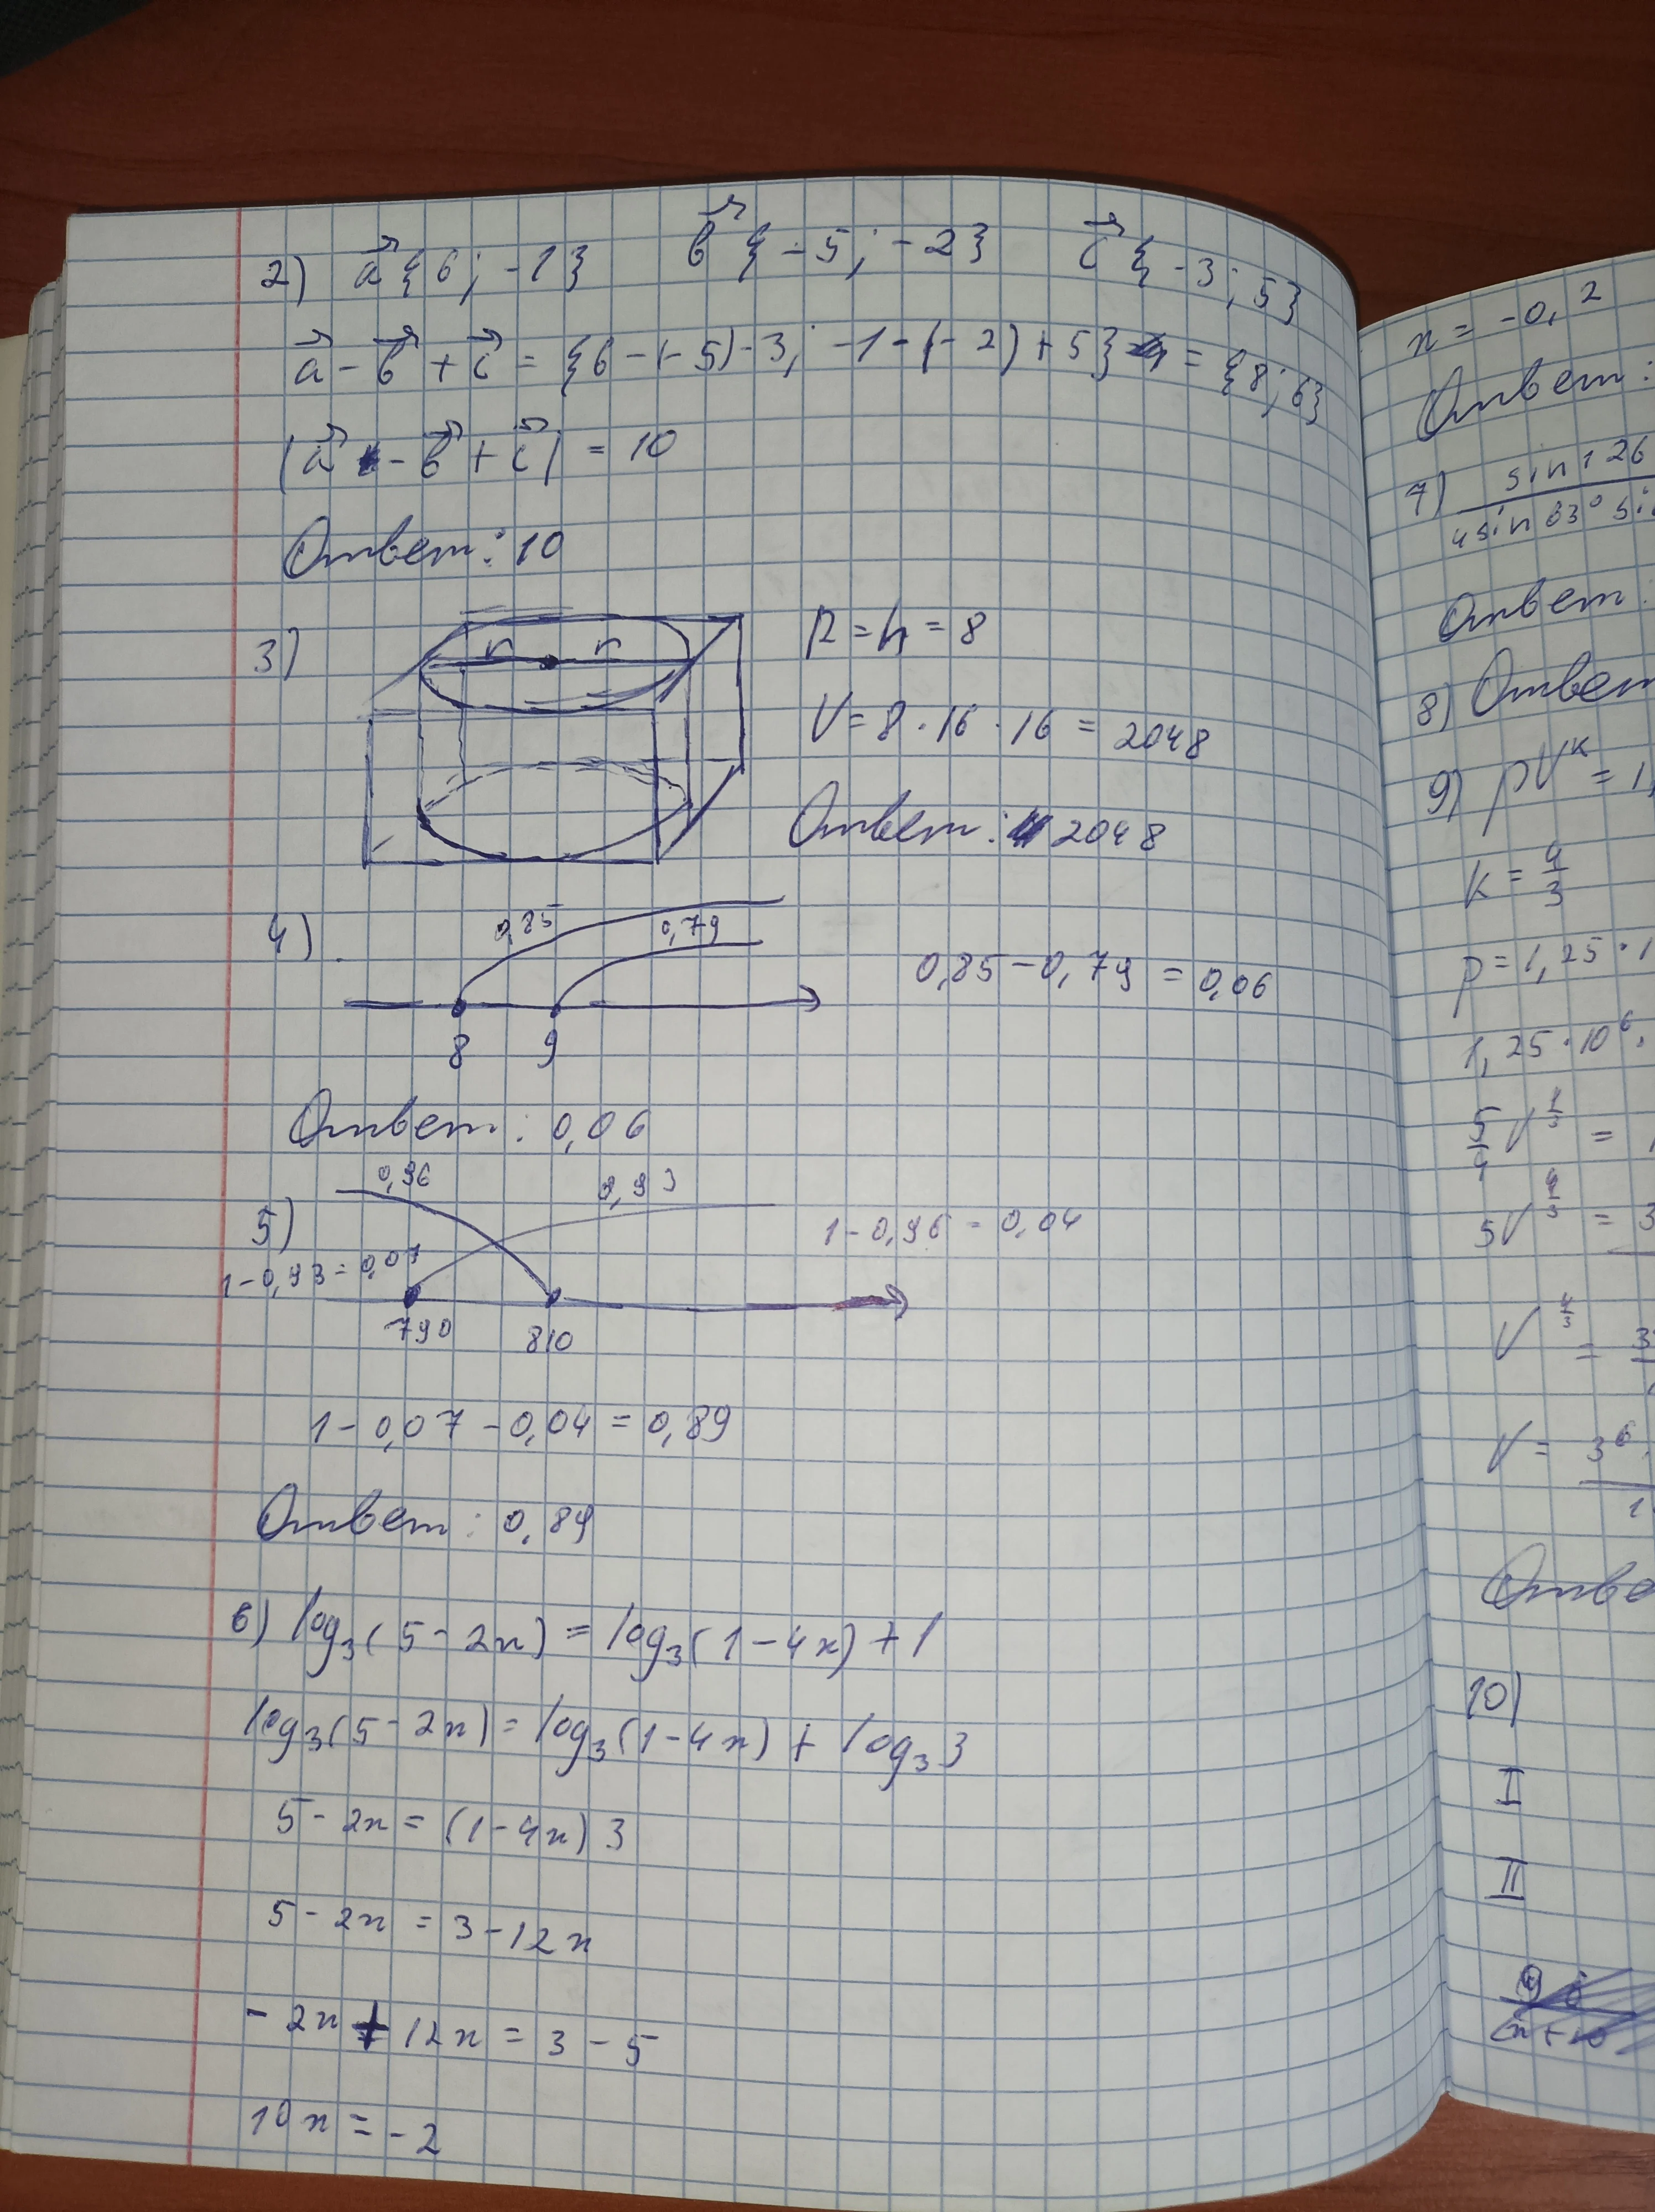 2) a⃗{6; -1} b⃗{-5; -2} c⃗{-3; 5}
a⃗ - b⃗ + c⃗ = {6-(-5)-3; -1-(-2)+5} = {8; 6}
|a⃗ - b⃗ + c⃗| = 10
Ответ: 10
3)
r r
R = h = 8
V = 8 · 16 · 16 = 2048
Ответ: 2048
4)
0,85 0,79
8 9
0,85 - 0,79 = 0,06
Ответ: 0,06
5)
0,96 0,93
1 - 0,96 = 0,04
1 - 0,93 = 0,07
790 810
1 - 0,07 - 0,04 = 0,89
Ответ: 0,89
6) log₃(5-2x) = log₃(1-4x) + 1
log₃(5-2x) = log₃(1-4x) + log₃3
5 - 2x = (1-4x) 3
5 - 2x = 3 - 12x
- 2x + 12x = 3 - 5
10x = -2
x = -0,2
Ответ:
7) sin 126
4 sin 63° si
Ответ:
8) Ответ
9) pV^k = 1,
k = 4/3
p = 1,25 · 1
1,25 · 10⁶ ·
5/4 V^(4/3) =
5V^(4/3) = 3
V^(4/3) = 3
V = 3⁶ ·
Отве
10)
I
II